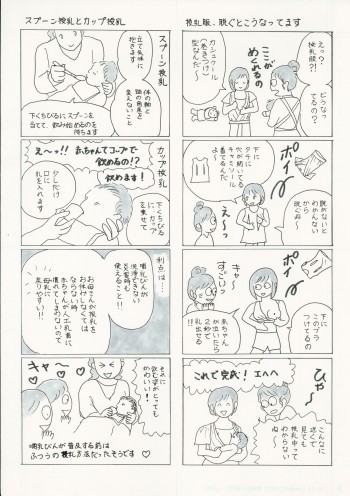 授乳服、脱ぐとこうなってます
えっ?
授乳服?!
どうなってるの?
カシュクール
(巻きつけ)
型なんだ
ここが
めくれるの
下に
タテに
穴が開いてる
キャミソール
着てるんだ
ポイ
脱がないと
わかんない
から
脱ぐぬ〜
え〜っ
下に
このブラ
つけてるの
ポイ
キャー
すご〜い
赤ちゃん
が泣いたら
2秒で
乳出せる
ひゃ〜
こんなに
近くで
見ても
授乳中って
わかんない
ぬ〜
これで完ペキ! エヘヘ
スプーン授乳とカップ授乳
スプーン授乳
立て気味に
抱きます
体の軸と
頭の角度を
変えないこと
下くちびるにスプーンを
当てて、飲み始めるのを
待ちます
カップ授乳
え〜っ!! 赤ちゃんてコップで
飲めるの!?
飲めます!
下くちびる
にカップ
を乗せて
少しだけ
口に
乳を入れます
利点は…
哺乳びんが
洗浄できない
災害時も
使えること!!
お母さんが授乳を
お休みしなくては
ならない時、
赤ちゃんが人工乳首に
慣れてしまわないので
母乳に
戻りやすい!!
キャ〜
それに
飲む姿がとっても
かわいい!!
哺乳びんが普及する前は
ふつうの授乳方法だったそうです